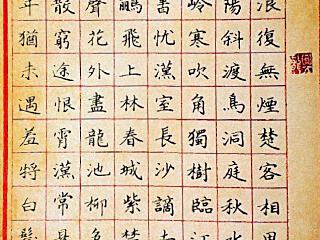 浪復無煙楚客相思
陽斜渡鳥洞庭秋水
岭寒吹角獨樹臨江
書忧漢室長沙謫去
飛上林春城紫禁
聲花外盡龍池柳色
散窮途恨霄漢常
年猶未遇羞將白髮